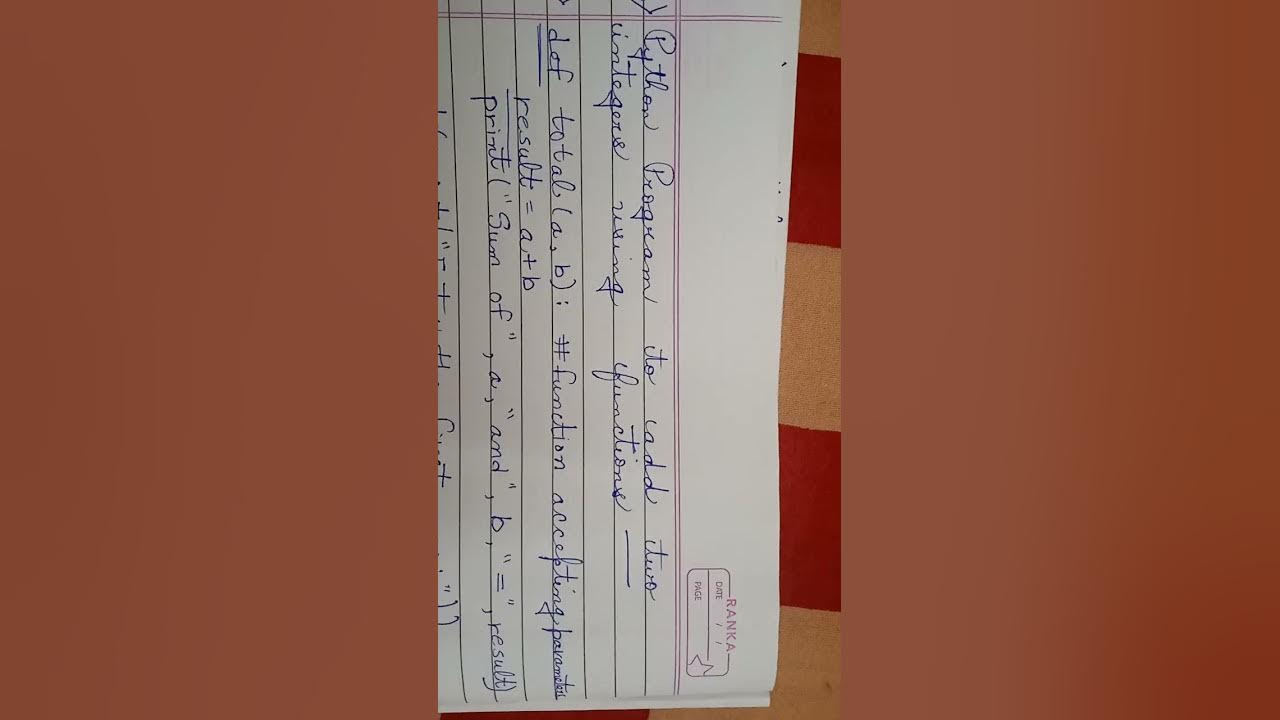 RANKA
DATE / /
PAGE
) Python Program to add two
integers using functions —
def total(a, b): #function accepting parameters
result = a+b
print("Sum of", a, "and", b, "=", result)